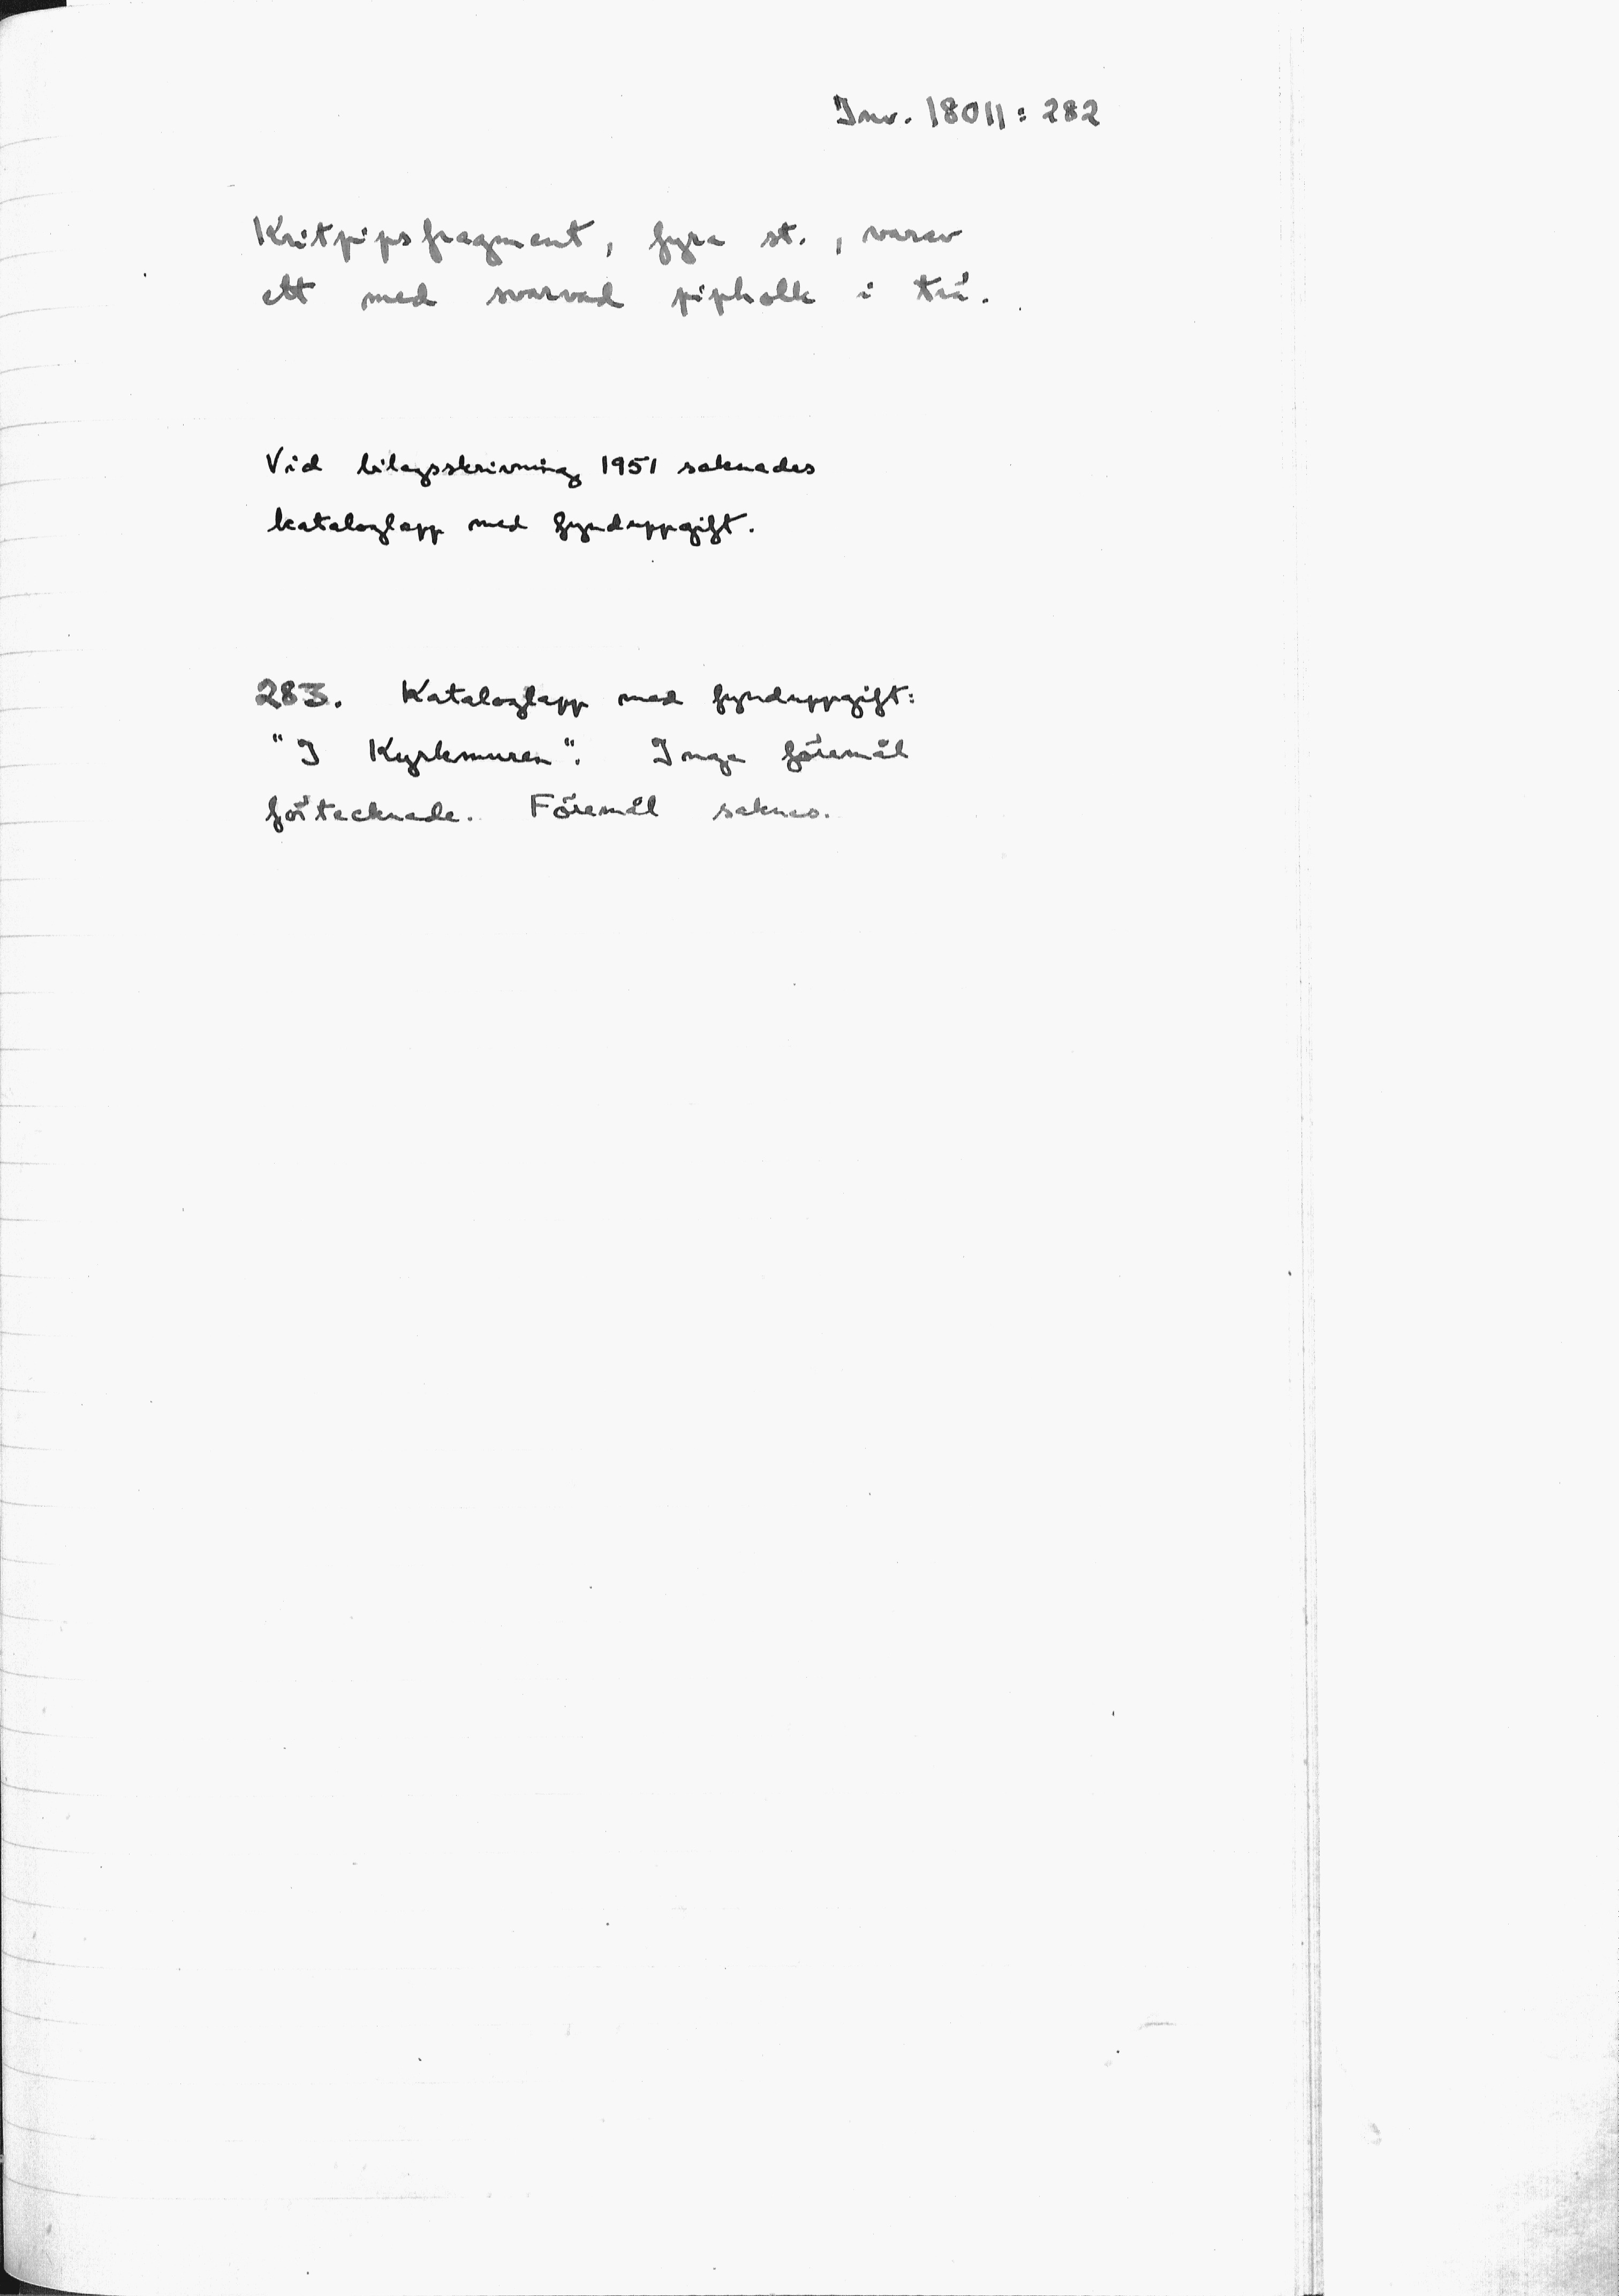 Inv. 18011:282
Kritpipsfragment, fyra st., varav
ett med svarvad pipholk i trä.
Vid bilagsskrivning 1951 saknades
kataloglapp med fynduppgift.
283. Kataloglapp med fynduppgift:
"I Kyrkmuren". Inga föremål
förtecknade. Föremål saknas.